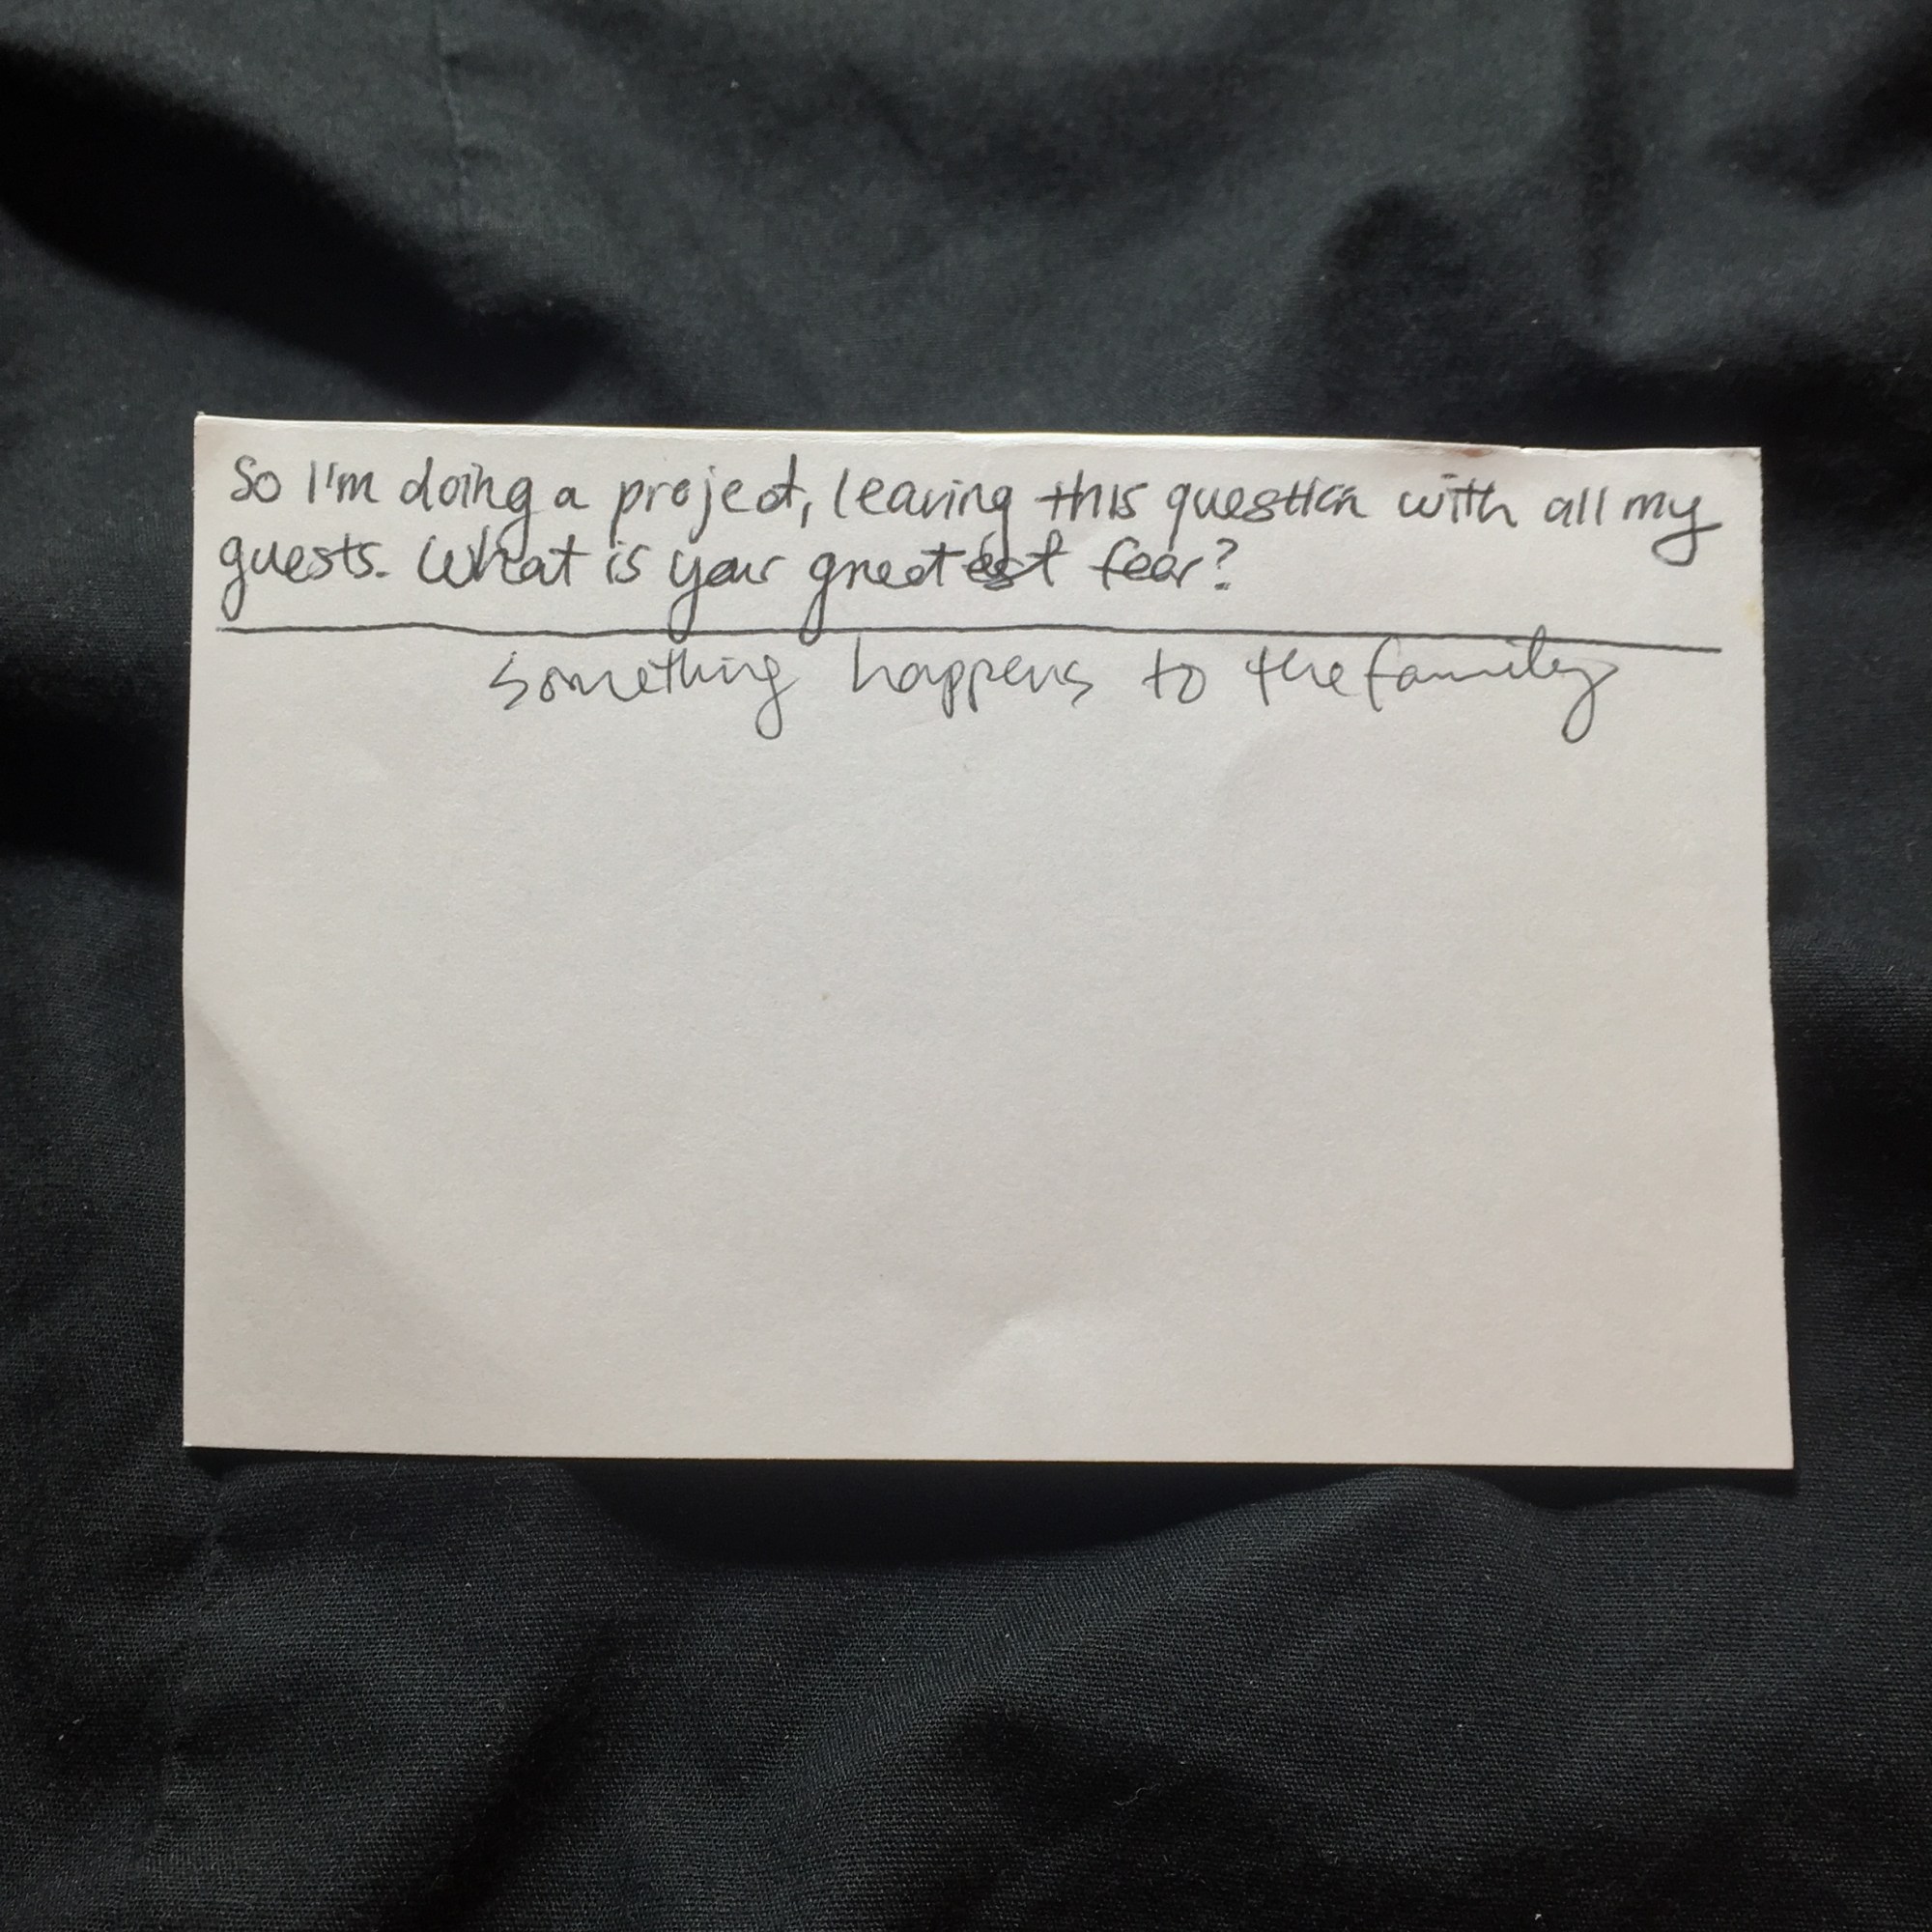 So I'm doing a project, leaving this question with all my
guests. What is your greatest fear?
something happens to the family